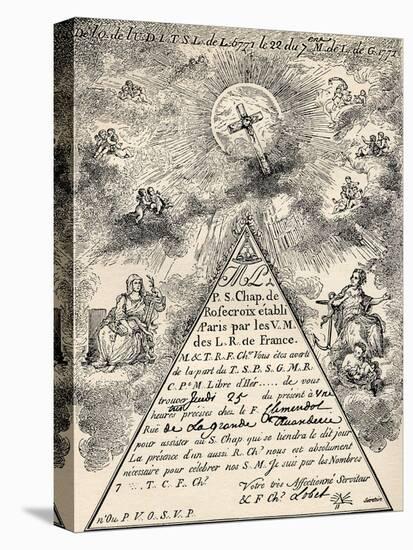 De l'O. de l'U. D. I. T. S. L. de L. 6771 le 22 du 7eme M. de L. de G. 1771
A L
P. S. Chap. de
Rosecroix etabli
a Paris par les V. M.
des L. R. de France.
M. & T. R. F. Cher. Vous êtes averti
de la part du T. S. P. S. G. M. R.
C. Pce. M. Libre d'Her..... de vous
trouver Jeudi 25 du présent à
heures précises chez le F.
Rue de la grande
pour assister au S. Chap qui se tiendra le dit jour
La présence d'un aussi R. Cher. nous est absolument
nécessaire pour célébrer nos S. M. Je suis par les Nombres
7 T. C. F. Cher. Votre très Affectionné Serviteur
& F. Cher.
n'Ou P. V. O. S. V. P.